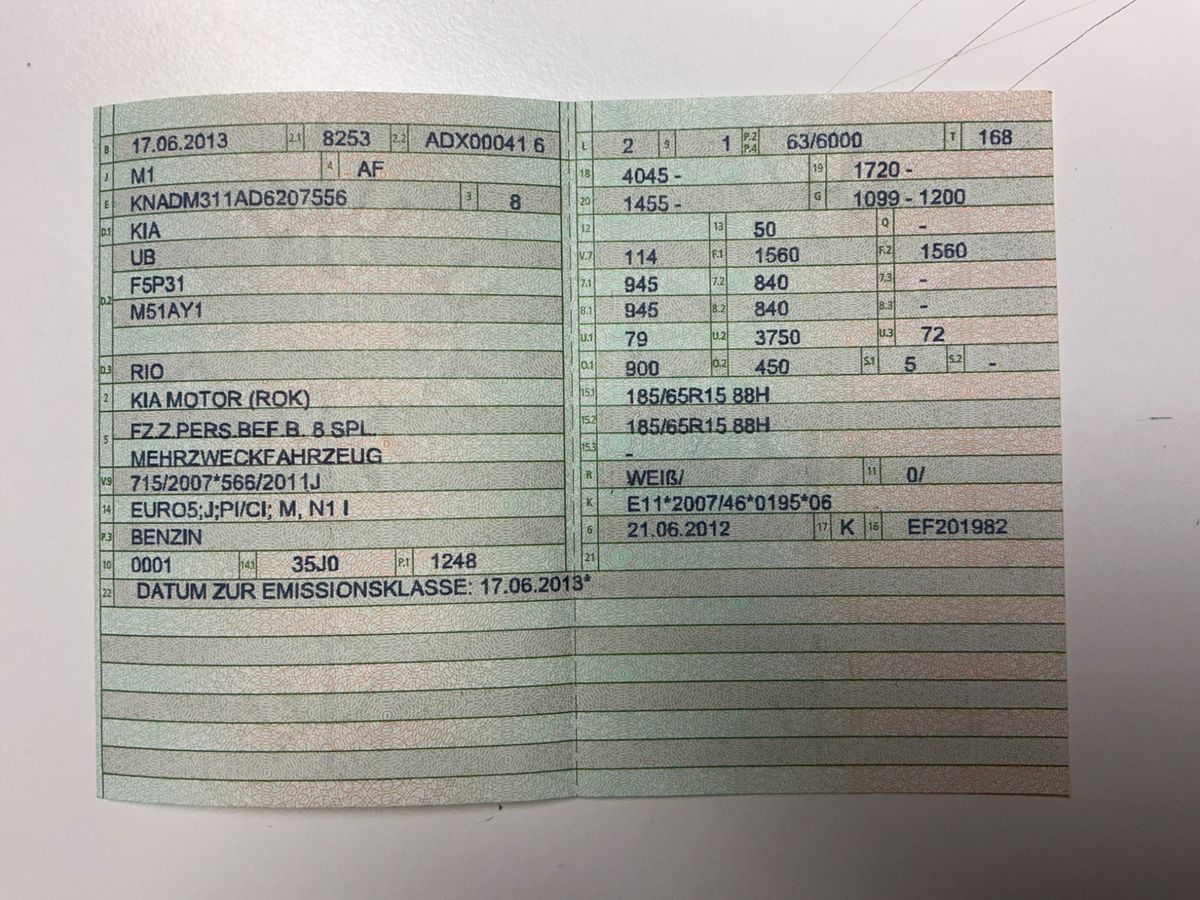 B 17.06.2013 2.1 8253 2.2 ADX00041 6
J M1 4 AF
E KNADM311AD6207556 3 8
D.1 KIA
UB
D.2 F5P31
M51AY1
D.3 RIO
2 KIA MOTOR (ROK)
5 FZ.Z.PERS.BEF.B. 8 SPL.
MEHRZWECKFAHRZEUG
V.9 715/2007*566/2011J
14 EURO5;J;PI/CI; M, N1 I
P.3 BENZIN
10 0001 14.1 35J0 P.1 1248
22 DATUM ZUR EMISSIONSKLASSE: 17.06.2013*
L 2 9 1 P.2 P.4 63/6000 T 168
18 4045 - 19 1720 -
20 1455 - G 1099 - 1200
12 13 50 Q -
V.7 114 F.1 1560 F.2 1560
7.1 945 7.2 840 7.3 -
8.1 945 8.2 840 8.3 -
U.1 79 U.2 3750 U.3 72
O.1 900 O.2 450 S.1 5 S.2 -
15.1 185/65R15 88H
15.2 185/65R15 88H
15.3 -
R WEIß/ 11 0/
K E11*2007/46*0195*06
6 21.06.2012 17 K 16 EF201982
21